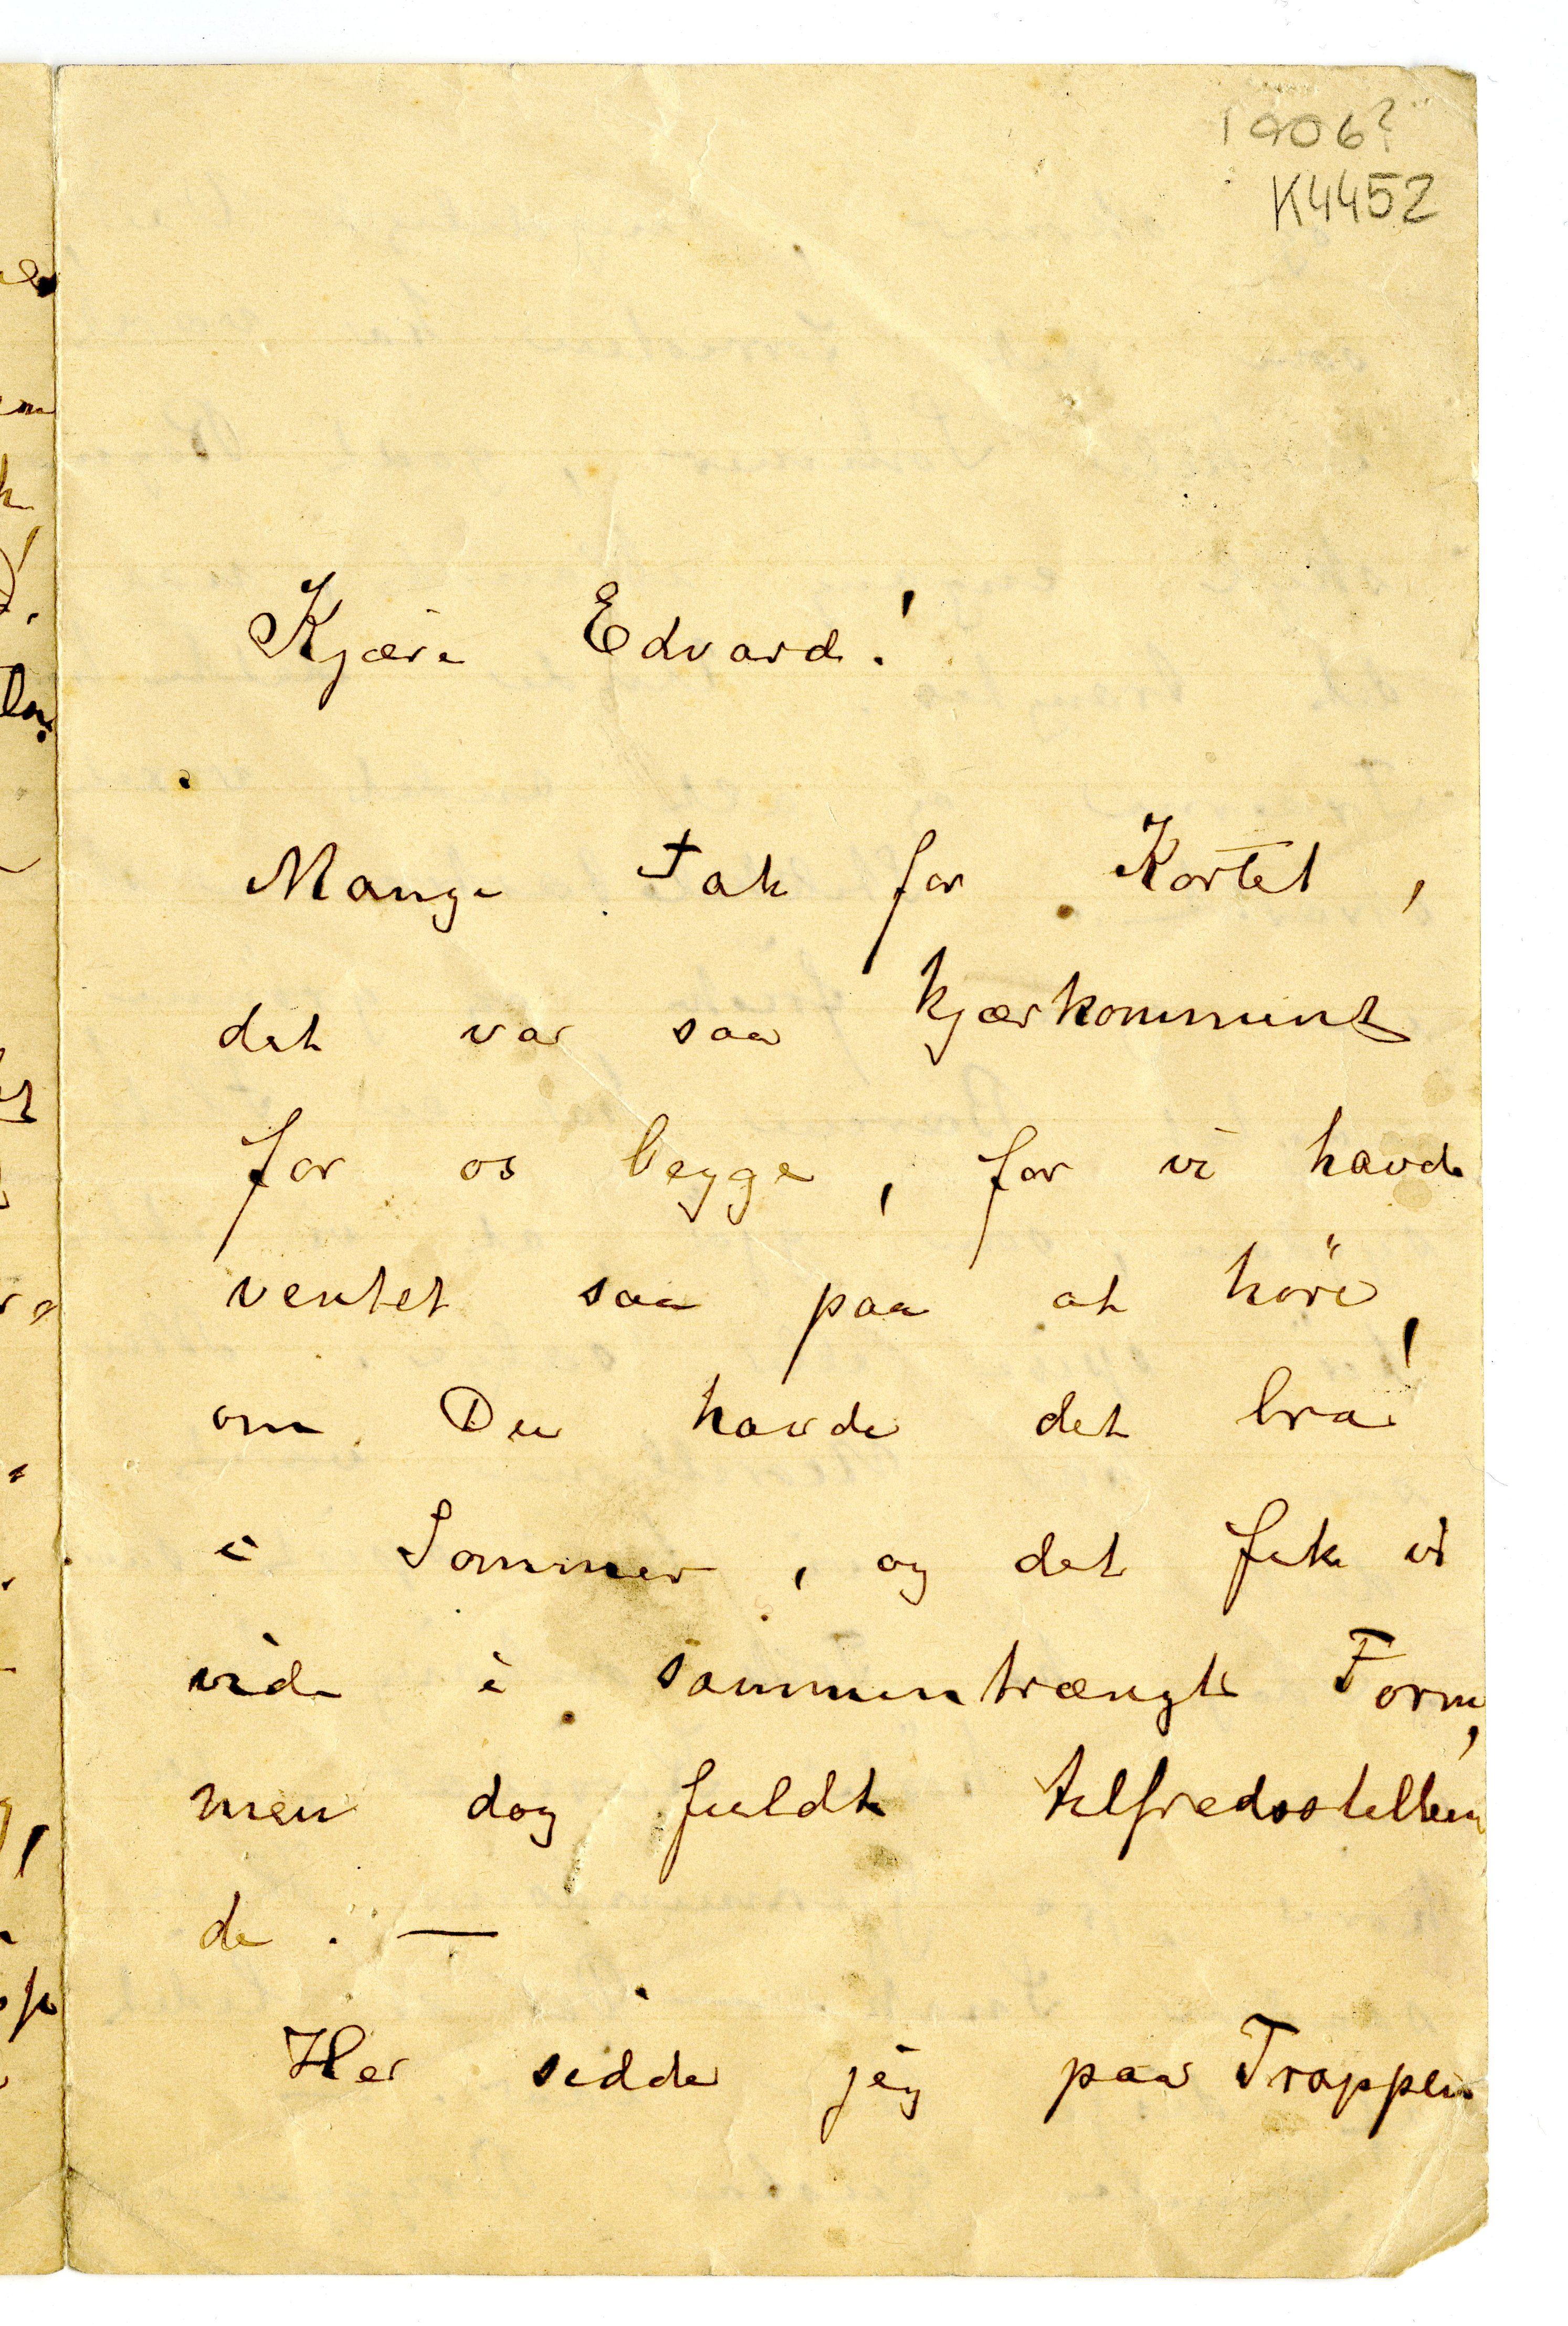 1906?
K4452
Kjære Edvard!
Mange Tak for Kortet,
det var saa kjærkomment
for os begge, for vi havde
ventet saa paa at höre,
om Du havde det bra
i Sommer, og det fik vi
vide i sammentrængt Form,
men dog fuldt tilfredsstillen
de. —
Her sidder jeg paa Trappen